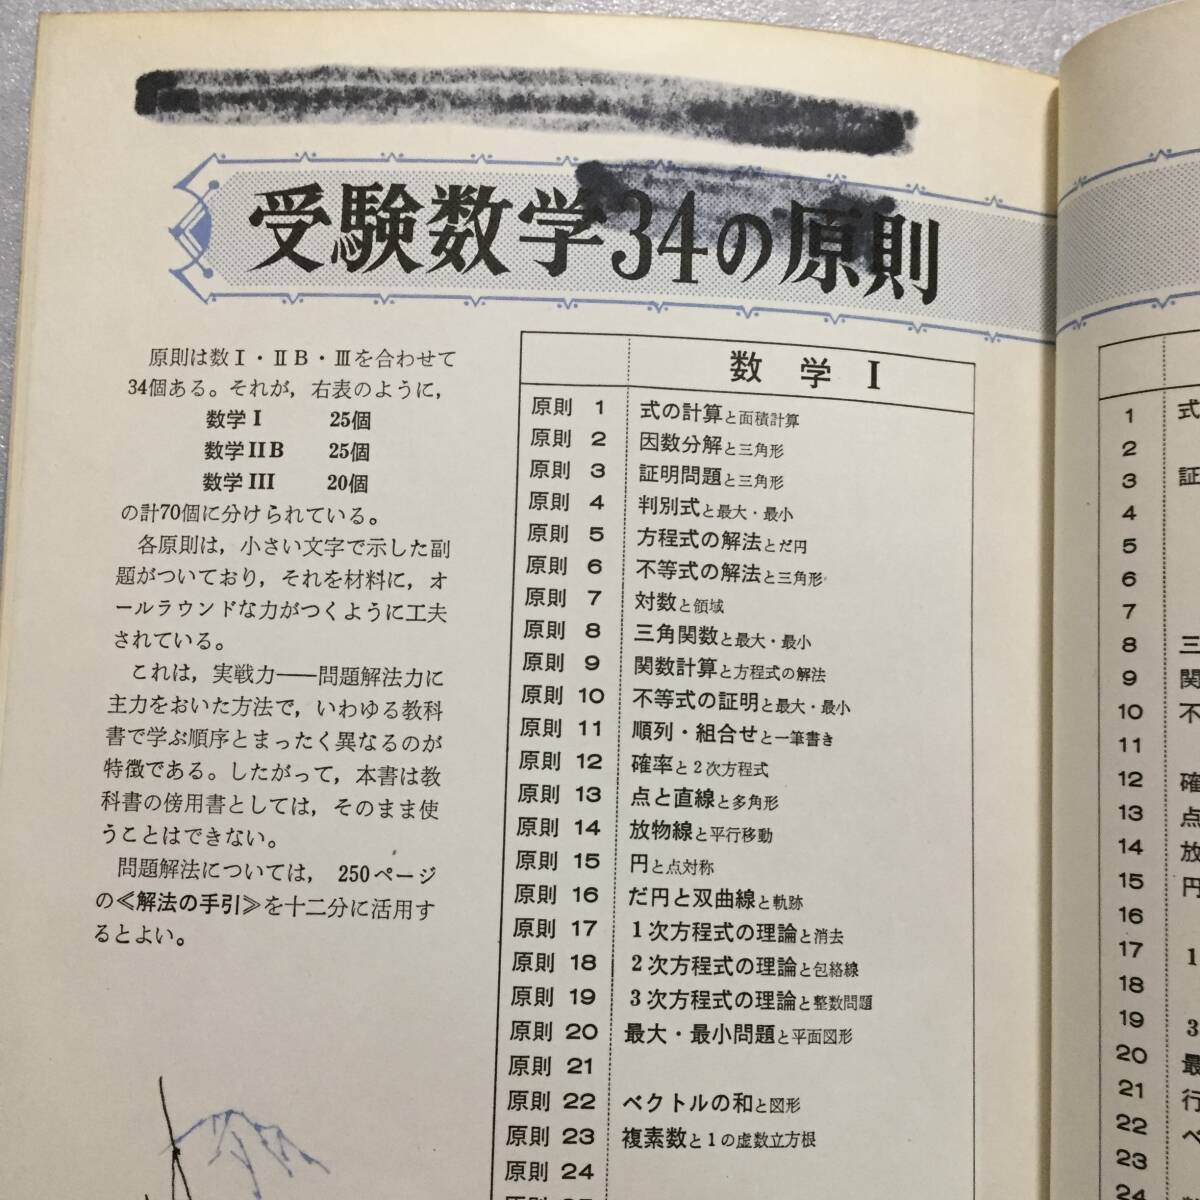 受験数学34の原則
原則は数Ⅰ・ⅡB・Ⅲを合わせて
34個ある。それが,右表のように,
数学Ⅰ 25個
数学ⅡB 25個
数学Ⅲ 20個
の計70個に分けられている。
各原則は,小さい文字で示した副
題がついており,それを材料に,オ
ールラウンドな力がつくように工夫
されている。
これは,実戦力──問題解法力に
主力をおいた方法で,いわゆる教科
書で学ぶ順序とまったく異なるのが
特徴である。したがって,本書は教
科書の傍用書としては,そのまま使
うことはできない。
問題解法については, 250ページ
の≪解法の手引≫を十二分に活用す
るとよい。
数学Ⅰ
原則 1 式の計算と面積計算
原則 2 因数分解と三角形
原則 3 証明問題と三角形
原則 4 判別式と最大・最小
原則 5 方程式の解法とだ円
原則 6 不等式の解法と三角形
原則 7 対数と領域
原則 8 三角関数と最大・最小
原則 9 関数計算と方程式の解法
原則 10 不等式の証明と最大・最小
原則 11 順列・組合せと一筆書き
原則 12 確率と2次方程式
原則 13 点と直線と多角形
原則 14 放物線と平行移動
原則 15 円と点対称
原則 16 だ円と双曲線と軌跡
原則 17 1次方程式の理論と消去
原則 18 2次方程式の理論と包絡線
原則 19 3次方程式の理論と整数問題
原則 20 最大・最小問題と平面図形
原則 21
原則 22 ベクトルの和と図形
原則 23 複素数と1の虚数立方根
原則 24
1 式
2
3 証
4
5
6
7
8 三
9 関
10 不
11
12 確
13 点
14 放
15 円
16
17 1
18
19 3
20 最
21 行
22 ベ
23
24